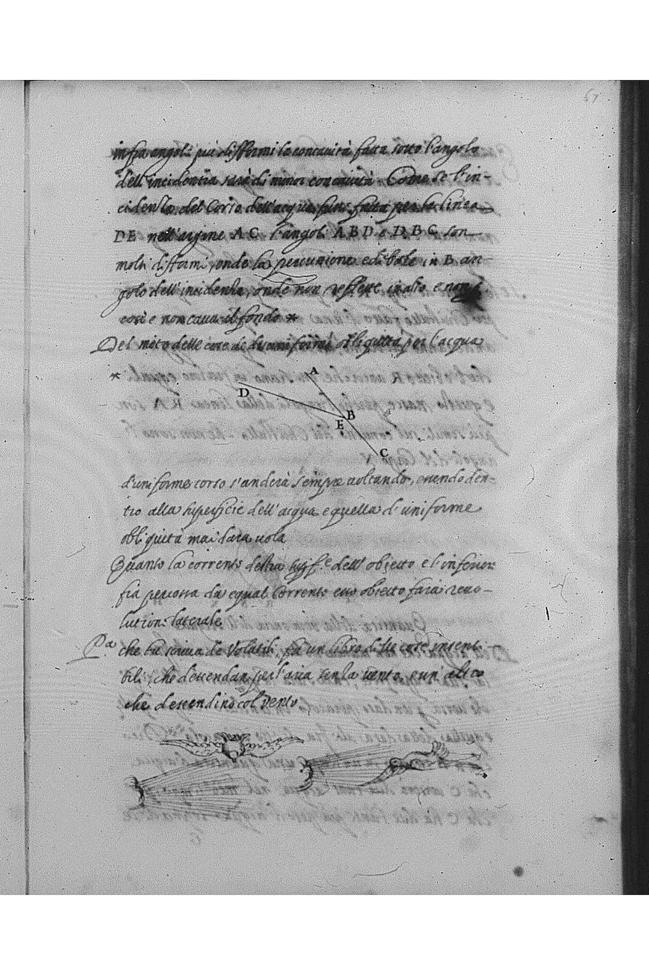 67
infra angoli piu difformi la concavità fatta sotto l'angolo
dell'incidentia sarà di minor concavità. Come se l'in-
cidentia del Corso dell'acqua fusse fatta per la linea
DE nell'argine A C l'angoli A B D e D B C son
molto difformi, onde la percussione ed ibale in B an-
golo dell'incidentia, onde non reflette in alto e non
così e non cava il fondo *
Del moto delle cose di disuniforme obliquità per l'acqua
*
A
D
B
E
C
d'uniforme corso s'anderà sempre voltando, essendo den-
tro alla superficie dell'acqua e quella d'uniforme
obliquità mai darà vola
Quanto la corrente della supf.e dell'obiecto e l'inferior
fia percossa da equal Corrente esso obiecto farà revo-
lutione laterale
Pa che tu scriva de Volatili, fa un libro di tte cose insensi-
bili, che descendan per l'aria senza vento, e un altro
che descendino col vento